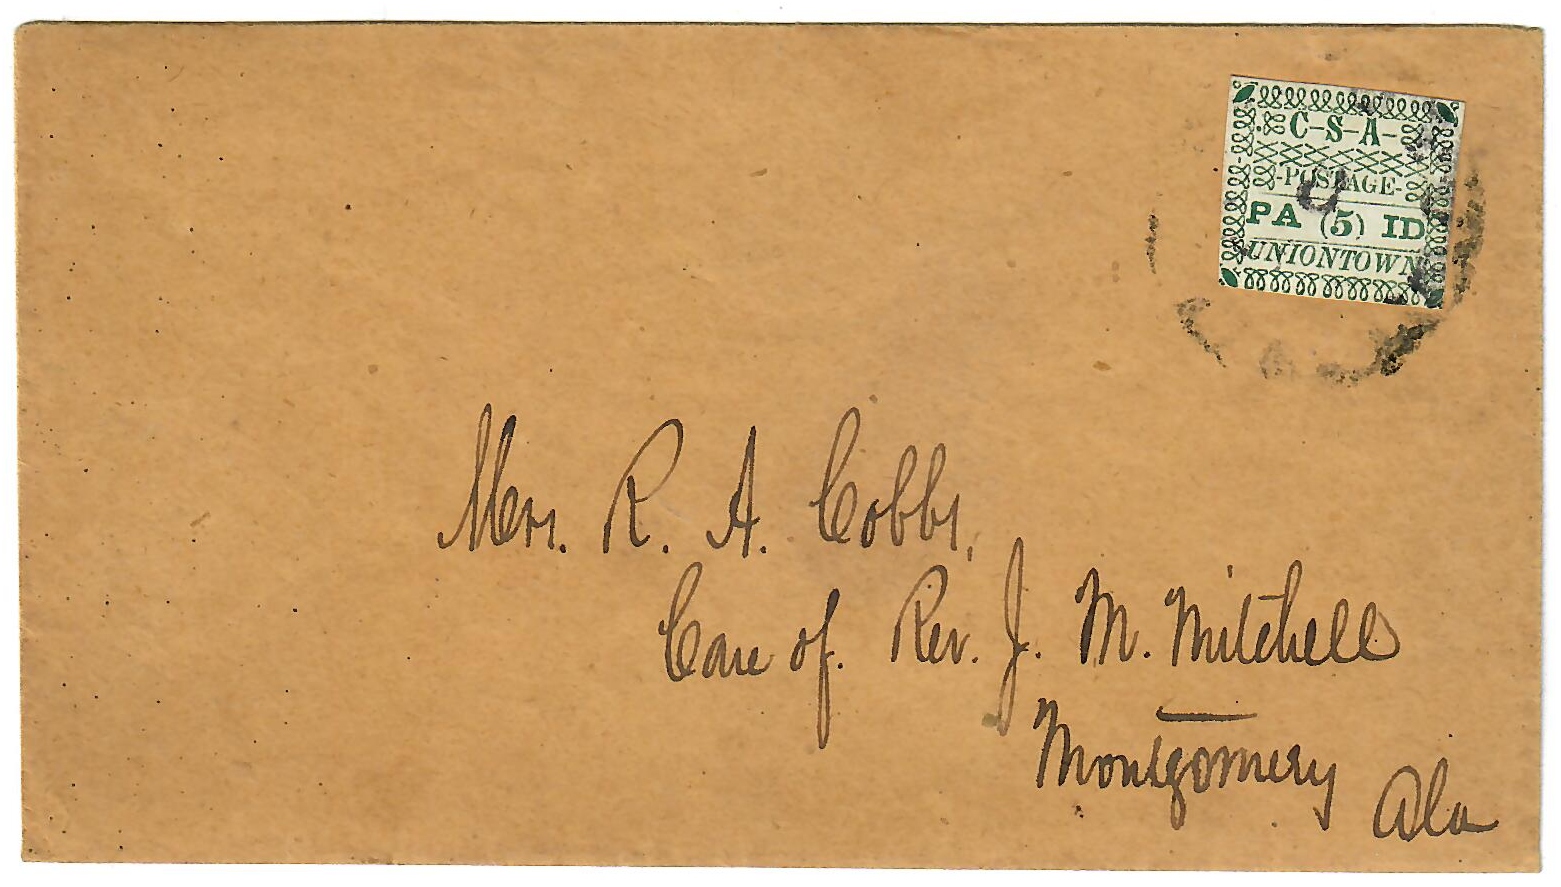 C-S-A-
-POSTAGE-
PA (5) ID
UNIONTOWN
Mrs. R. A. Cobbs,
Care of. Rev. J. M. Mitchell
Montgomery
Ala